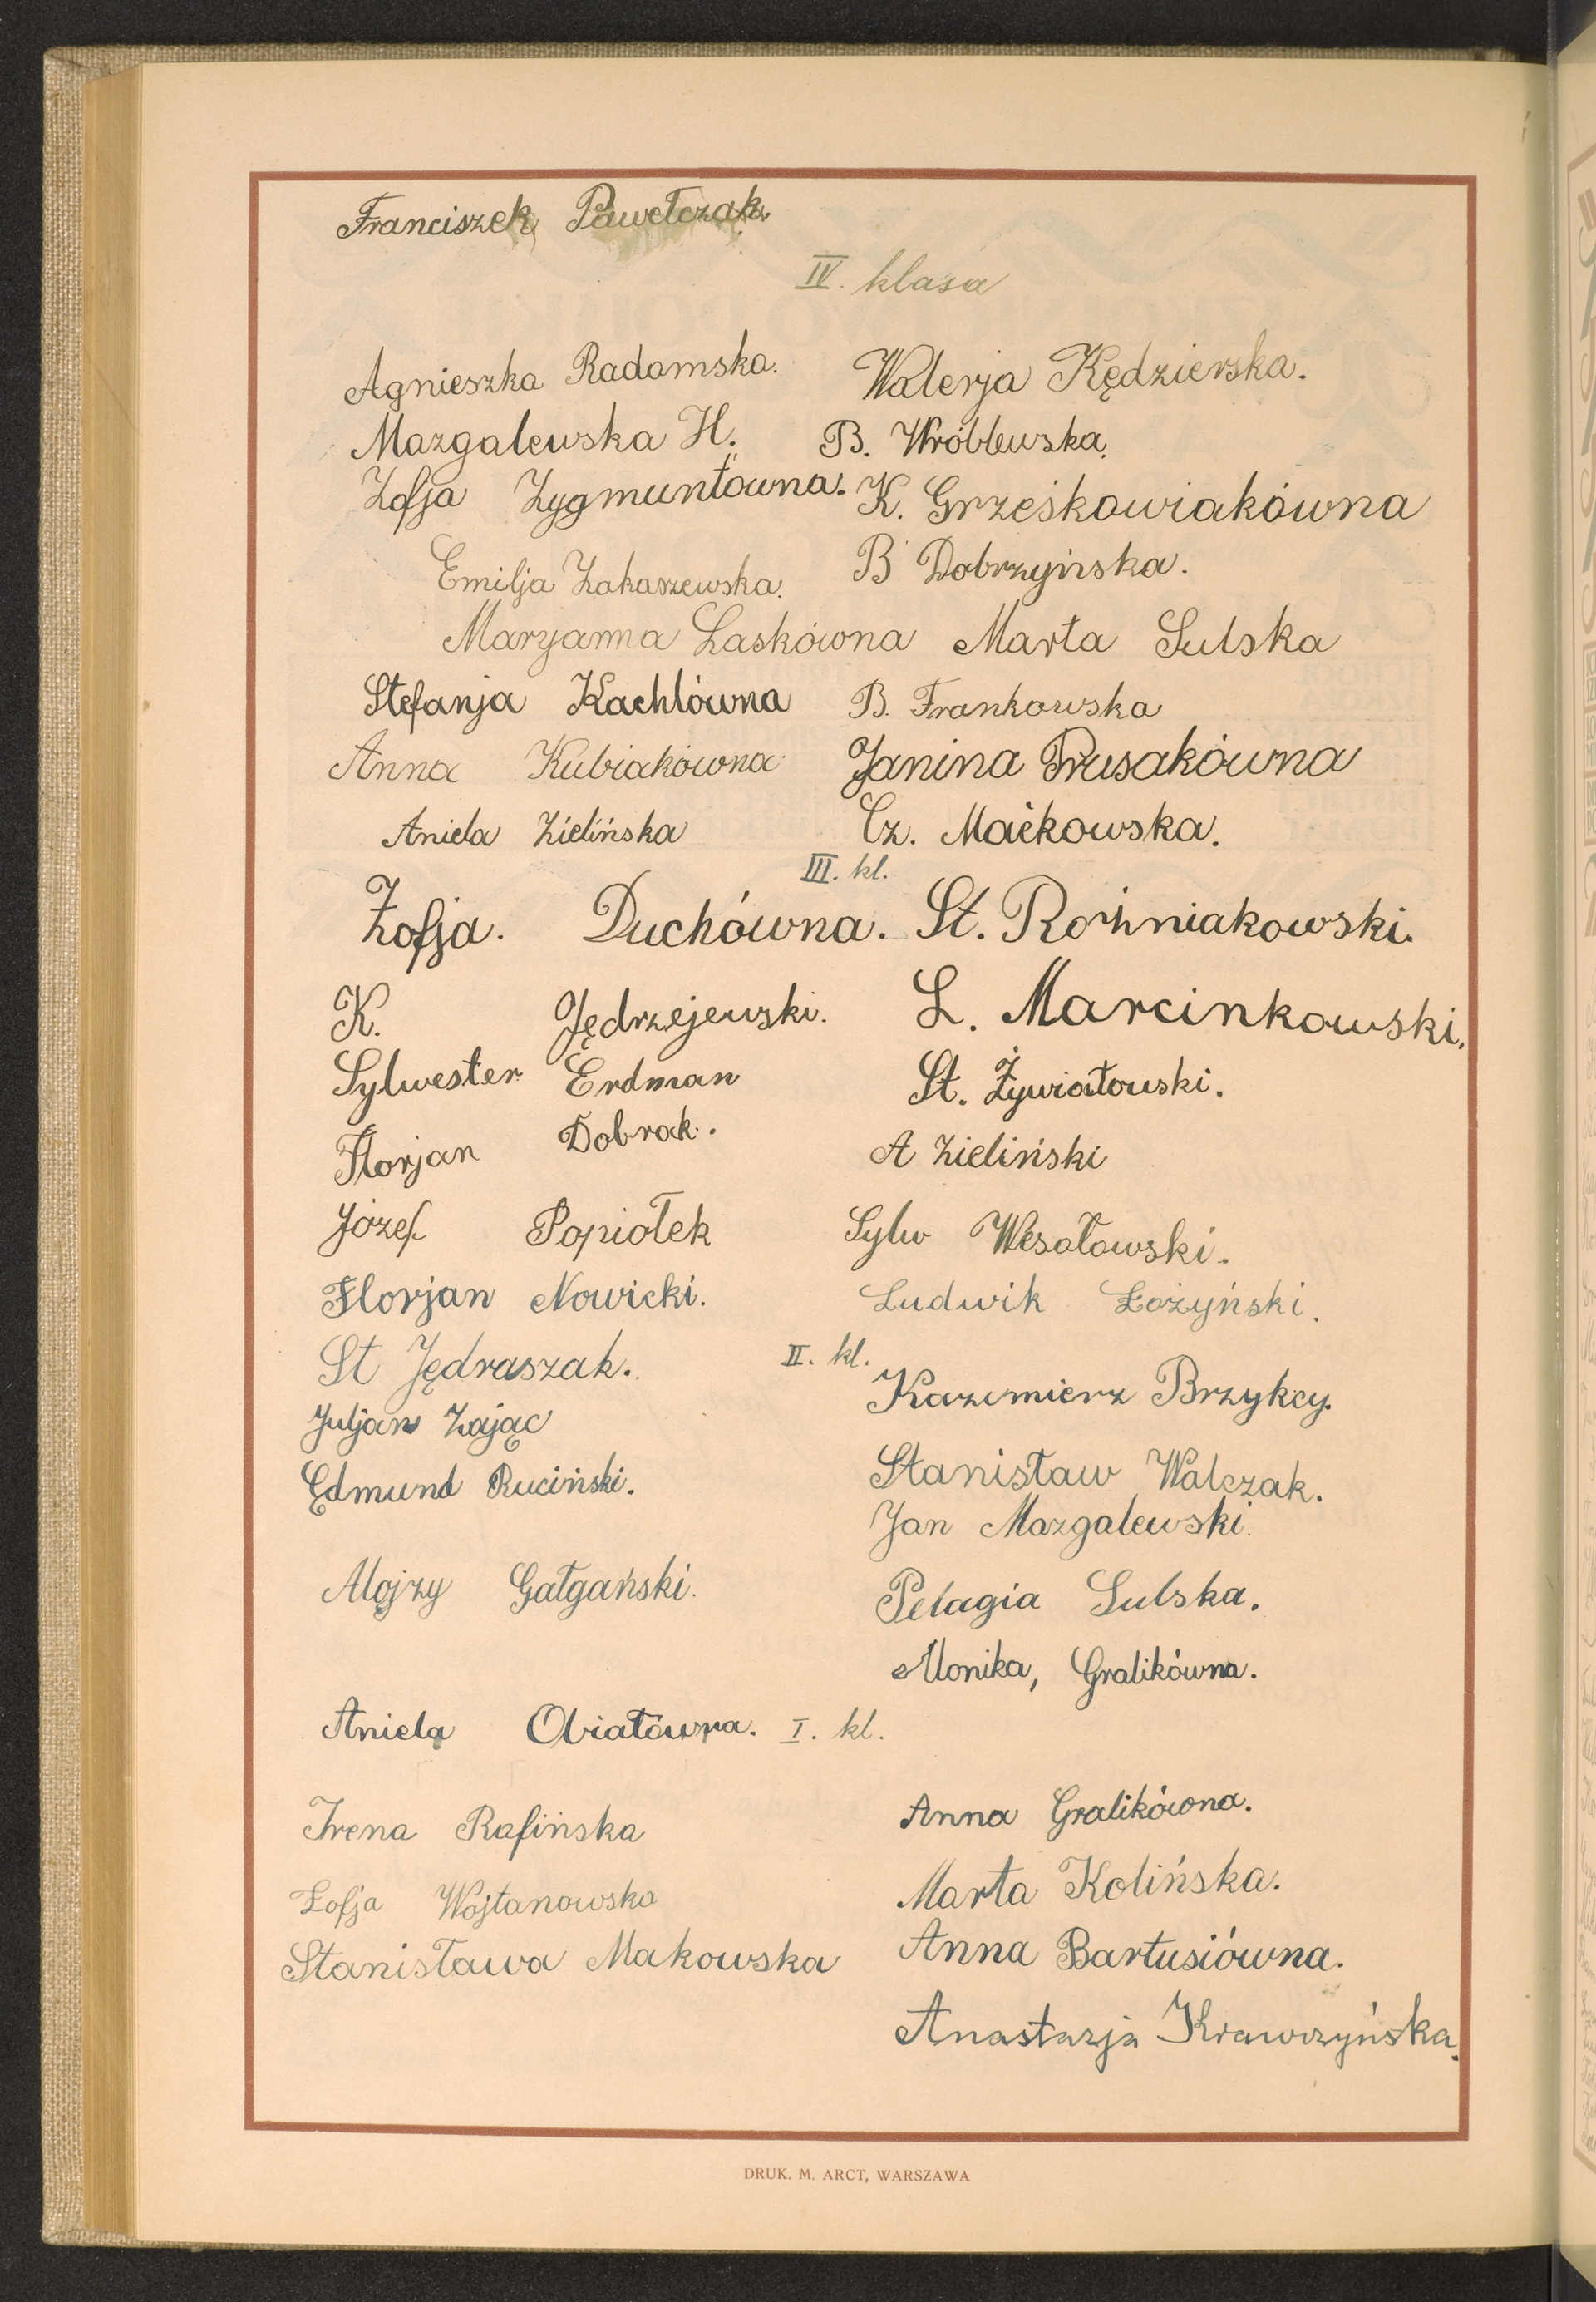 Franciszek Pawełczak.
IV. klasa
Agnieszka Radomska. Walerja Kędzierska.
Mazgalewska H. B. Wróblewska.
Zofja Zygmuntówna. K. Grześkowiakówna
Emilja Zakaszewska. B. Dobrzyńska.
Maryanna Laskówna Marta Sulska
Stefanja Kachlówna B. Frankowska
Anna Kubiakówna Janina Prusakówna
Aniela Zielińska Cz. Maćkowska.
III. kl.
Zofja. Duchówna. St. Rożniakowski.
K. Jędrzejewski. L. Marcinkowski.
Sylwester Erdman St. Żywiałowski.
Florjan Dobrak. A Zieliński
Józef Popiołek Sylw Wesołowski.
Florjan Nowicki. Ludwik Łożyński.
St Jędraszak. II. kl. Kazimierz Brzykcy.
Juljan Zając
Edmund Ruciński. Stanisław Walczak.
Jan Mazgalewski.
Alojzy Gałgański. Pelagia Sulska.
Monika, Gralikówna.
Aniela Obiatówna. I. kl.
Irena Rafińska Anna Gralikówna.
Zofja Wojtanowska Marta Kolińska.
Stanisława Makowska Anna Bartusiówna.
Anastazja Krawczyńska.
DRUK. M. ARCT, WARSZAWA